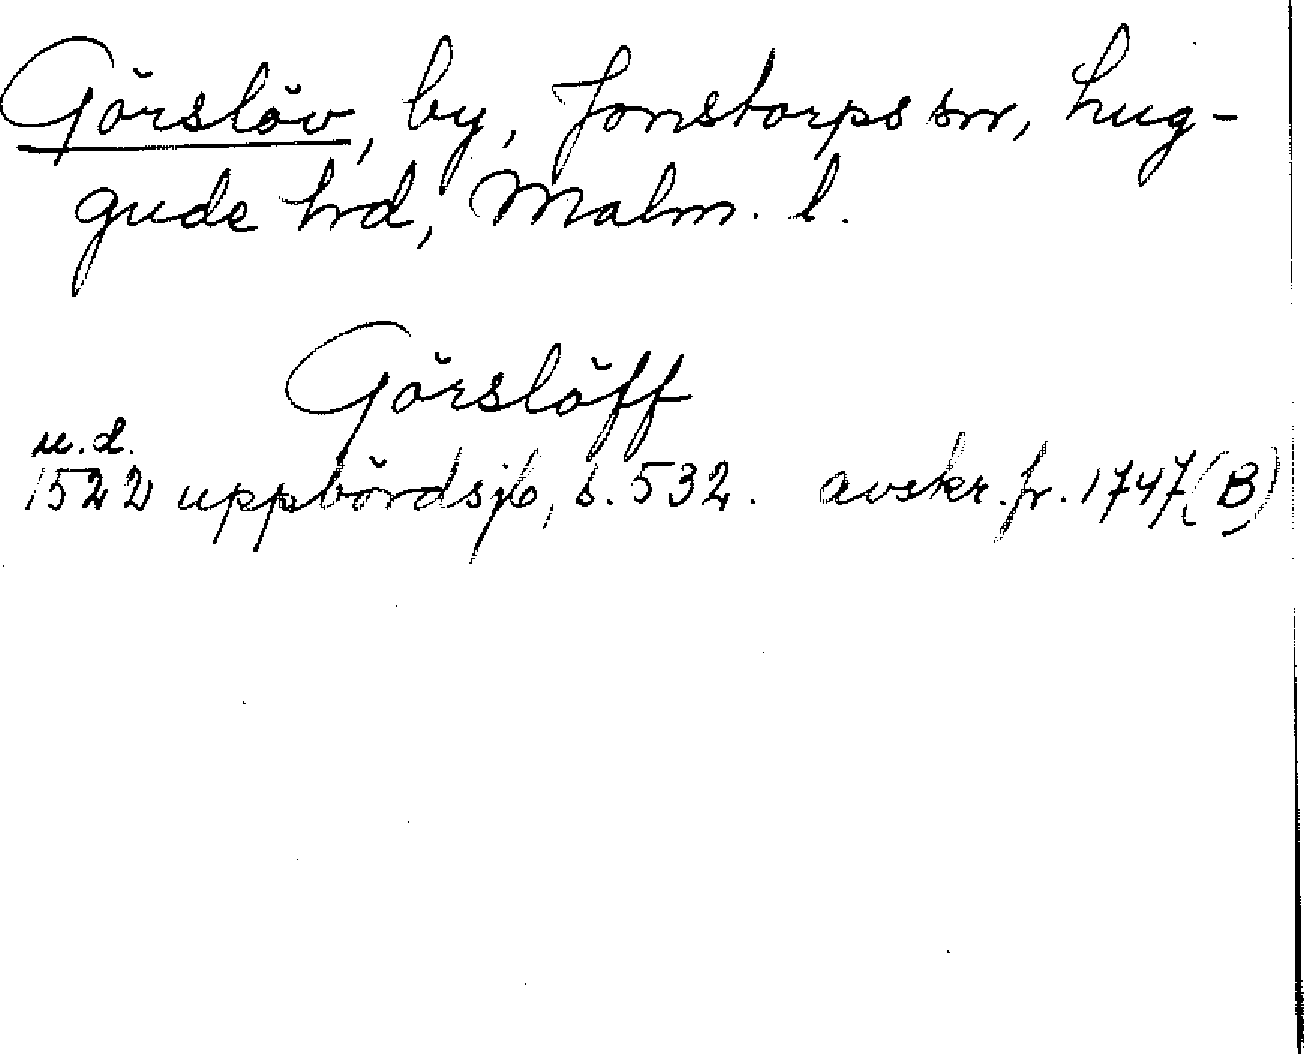 Görslöv, by, Jonstorps sn, Lug-
gude hrd, Malm. l.
Görslöff
u.d.
1522 uppbördsjb, s. 532. avskr. fr. 1747 (B)